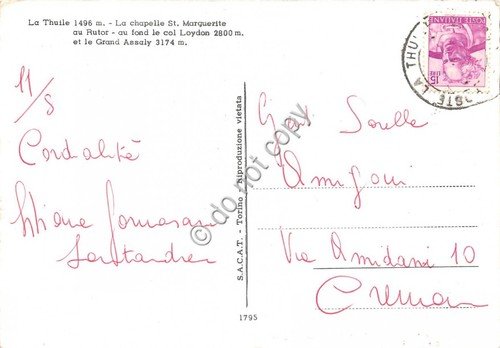 La Thuile 1496 m. - La chapelle St. Marguerite
au Rutor - au fond le col Loydon 2800 m.
et le Grand Assaly 3174 m.
11/8
Cordialité
S.A.C.A.T. - Torino - Riproduzione vietata
1795
POSTE ITALIANE
15
LIRE
POSTE LA THU
Sorelle
Amigoni
Via Amidani 10
Cremona
do not copy